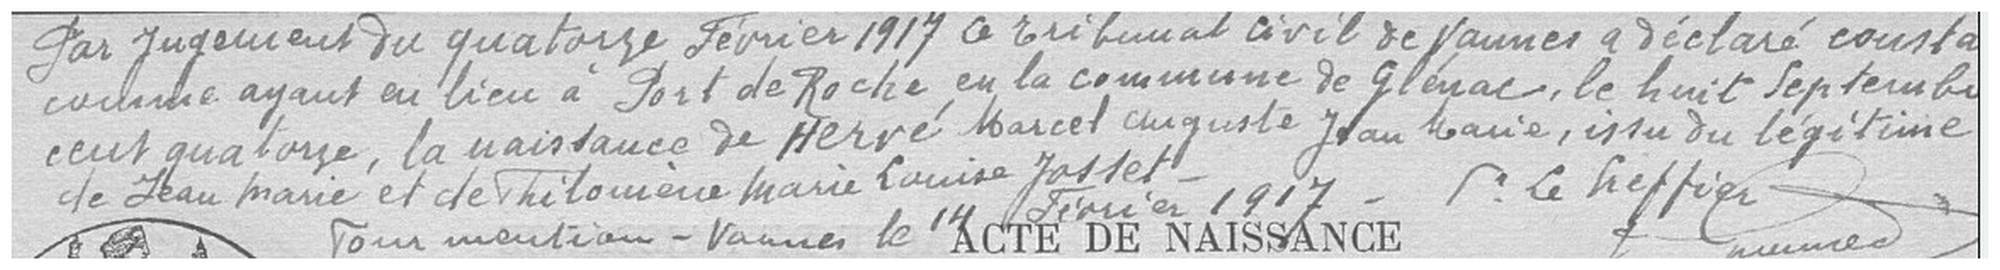 Par Jugement du quatorze Février 1917 le tribunal civil de Vannes a déclaré consta
comme ayant eu lieu à Port de Roche en la commune de Glénac, le huit Septembr
cent quatorze, la naissance de Hervé Marcel Auguste Jean Marie, issu du légitime
de Jean Marie et de Philomène Marie Louise Josset -
Pour mention - Vannes le 14 Février 1917 - Pr. Le Greffier
ACTE DE NAISSANCE